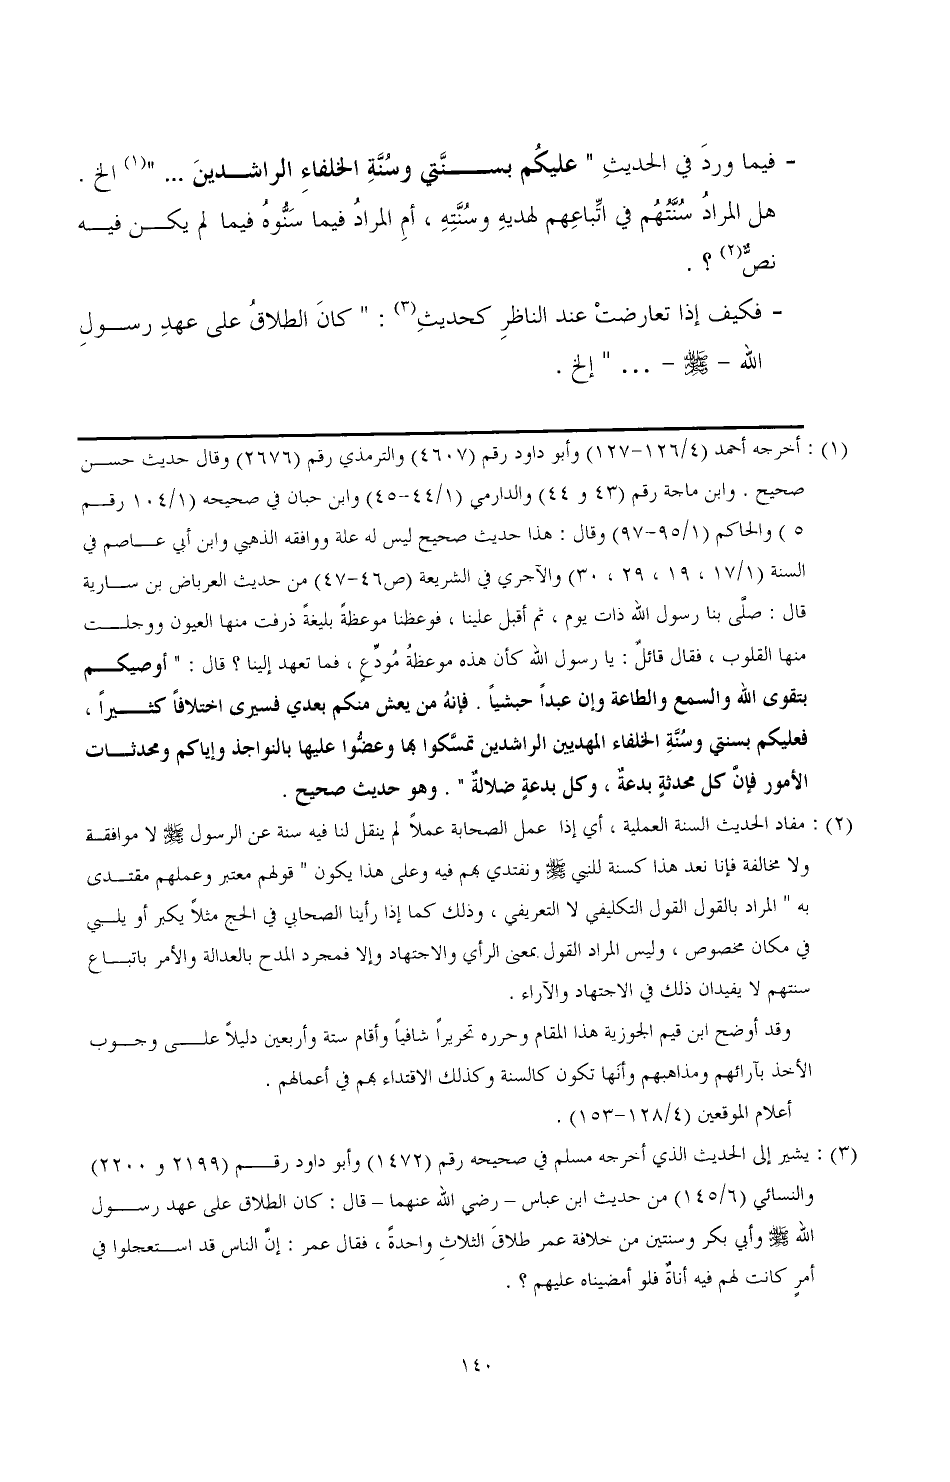 - فيما وردَ في الحديثِ " عليكُم بسـنَّتي وسُنَّةِ الخلفاءِ الراشدينَ ... "(١) الخ .
هل المرادُ سُنَّتُهُم في اتِّباعِهم لهديهِ وسُنَّتِهِ ، أمِ المرادُ فيما سَنُّوهُ فيما لم يكن فيه
نصٌّ(٢) ؟ .
- فكيف إذا تعارضتْ عند الناظرِ كحديثِ(٣) : " كانَ الطلاقُ على عهدِ رسولِ
الله - ﷺ - ... " إلخ .
(١) : أخرجه أحمد (١٢٦/٤-١٢٧) وأبو داود رقم (٤٦٠٧) والترمذي رقم (٢٦٧٦) وقال حديث حسن
صحيح . وابن ماجة رقم (٤٣ و ٤٤) والدارمي (٤٤/١-٤٥) وابن حبان في صحيحه (١٠٤/١ رقم
٥ ) والحاكم (٩٥/١-٩٧) وقال : هذا حديث صحيح ليس له علة ووافقه الذهبي وابن أبي عاصم في
السنة (١٧/١ ، ١٩ ، ٢٩ ، ٣٠) والآجري في الشريعة (ص٤٦-٤٧) من حديث العرباض بن سارية
قال : صلَّى بنا رسول الله ذات يوم ، ثم أقبل علينا ، فوعظنا موعظةً بليغةً ذرفت منها العيون ووجلت
منها القلوب ، فقال قائلٌ : يا رسول الله كأن هذه موعظةُ مُودِّعٍ ، فما تعهد إلينا ؟ قال : " أوصيكم
بتقوى الله والسمع والطاعة وإن عبداً حبشياً . فإنهُ من يعش منكم بعدي فسيرى اختلافاً كثيراً ،
فعليكم بسنتي وسُنَّةِ الخلفاء المهديين الراشدين تمسَّكوا بها وعضُّوا عليها بالنواجذ وإياكم ومحدثات
الأمور فإنَّ كل محدثةٍ بدعةٌ ، وكل بدعةٍ ضلالةٌ " . وهو حديث صحيح .
(٢) : مفاد الحديث السنة العملية ، أي إذا عمل الصحابة عملاً لم ينقل لنا فيه سنة عن الرسول ﷺ لا موافقة
ولا مخالفة فإنا نعد هذا كسنة للنبي ﷺ ونقتدي بهم فيه وعلى هذا يكون " قولهم معتبر وعملهم مقتدى
به " المراد بالقول القول التكليفي لا التعريفي ، وذلك كما إذا رأينا الصحابي في الحج مثلاً يكبر أو يلبي
في مكان مخصوص ، وليس المراد القول بمعنى الرأي والاجتهاد وإلا فمجرد المدح بالعدالة والأمر باتباع
سنتهم لا يفيدان ذلك في الاجتهاد والآراء .
وقد أوضح ابن قيم الجوزية هذا المقام وحرره تحريراً شافياً وأقام ستة وأربعين دليلاً على وجوب
الأخذ بآرائهم ومذاهبهم وأنَها تكون كالسنة وكذلك الاقتداء بهم في أعمالهم .
أعلام الموقعين (١٢٨/٤-١٥٣) .
(٣) : يشير إلى الحديث الذي أخرجه مسلم في صحيحه رقم (١٤٧٢) وأبو داود رقم (٢١٩٩ و ٢٢٠٠)
والنسائي (١٤٥/٦) من حديث ابن عباس - رضي الله عنهما - قال : كان الطلاق على عهد رسول
الله ﷺ وأبي بكر وسنتين من خلافة عمر طلاقَ الثلاثِ واحدةً ، فقال عمر : إنَّ الناس قد استعجلوا في
أمرٍ كانت لهم فيه أناةٌ فلو أمضيناه عليهم ؟ .
١٤٠